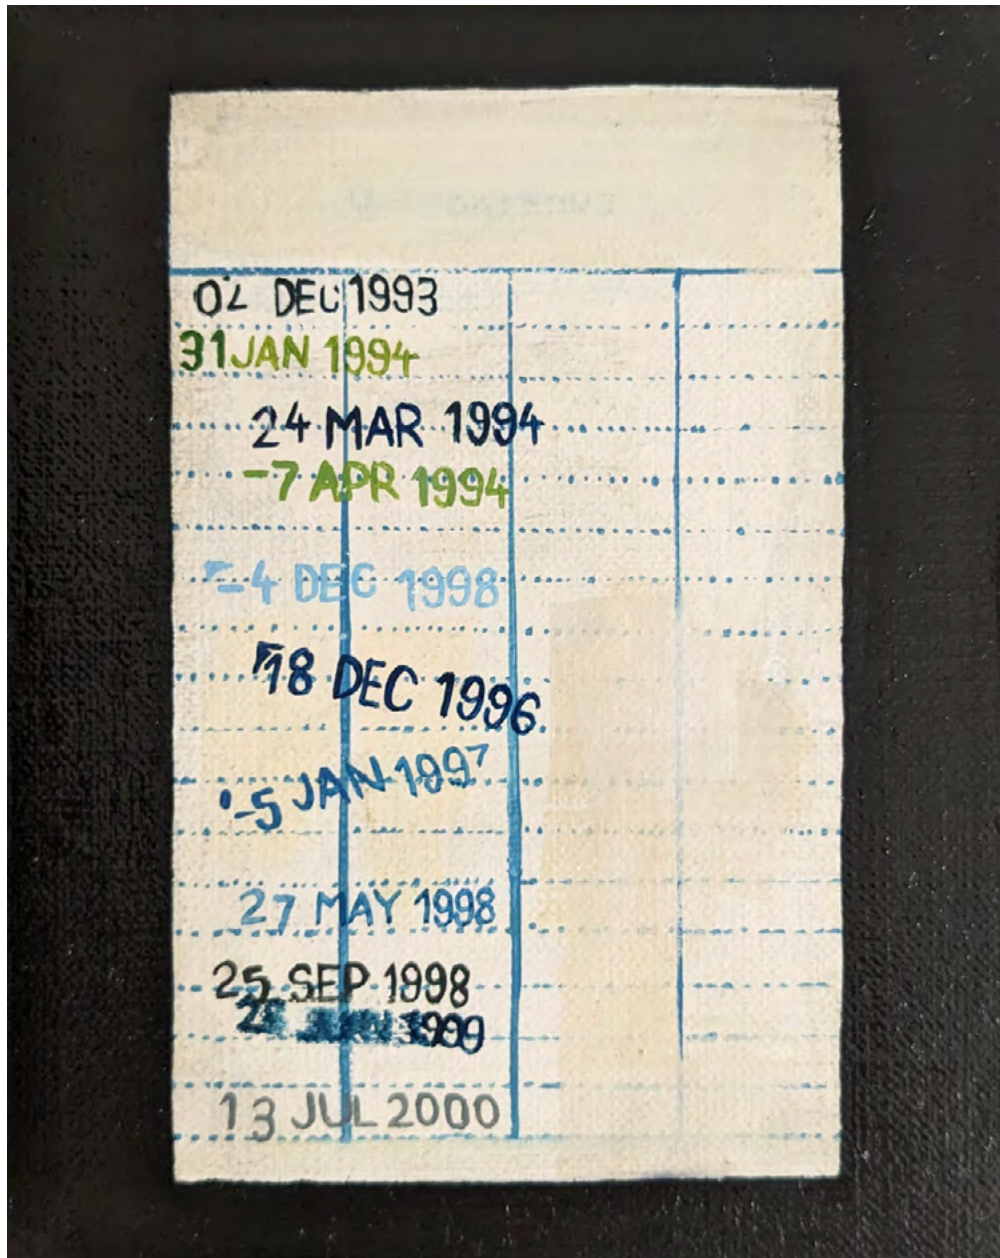 02 DEC 1993
31 JAN 1994
24 MAR 1994
-7 APR 1994
-4 DEC 1998
18 DEC 1996
-5 JAN 1997
27 MAY 1998
25 SEP 1998
1999
13 JUL 2000